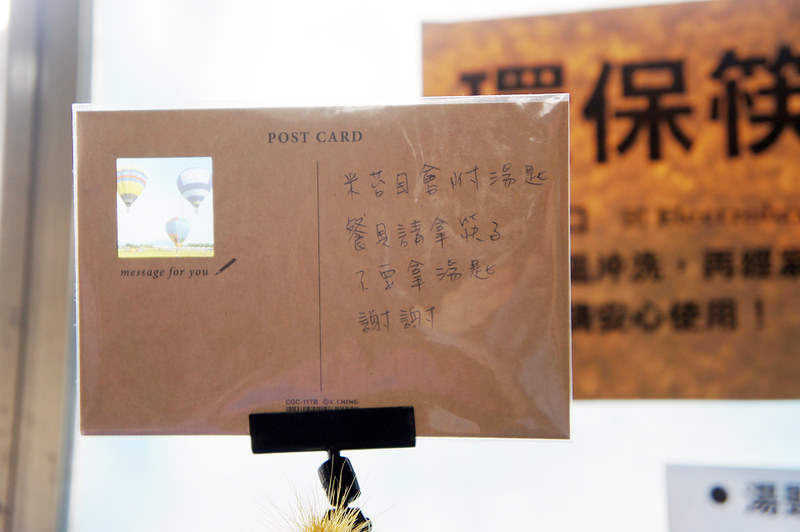 POST CARD
message for you
米苔目會附湯匙
餐具請拿筷子
不要拿湯匙
謝謝
CGC-117B ©K.CHING
環保筷
沖洗，再經
請安心使用！
湯